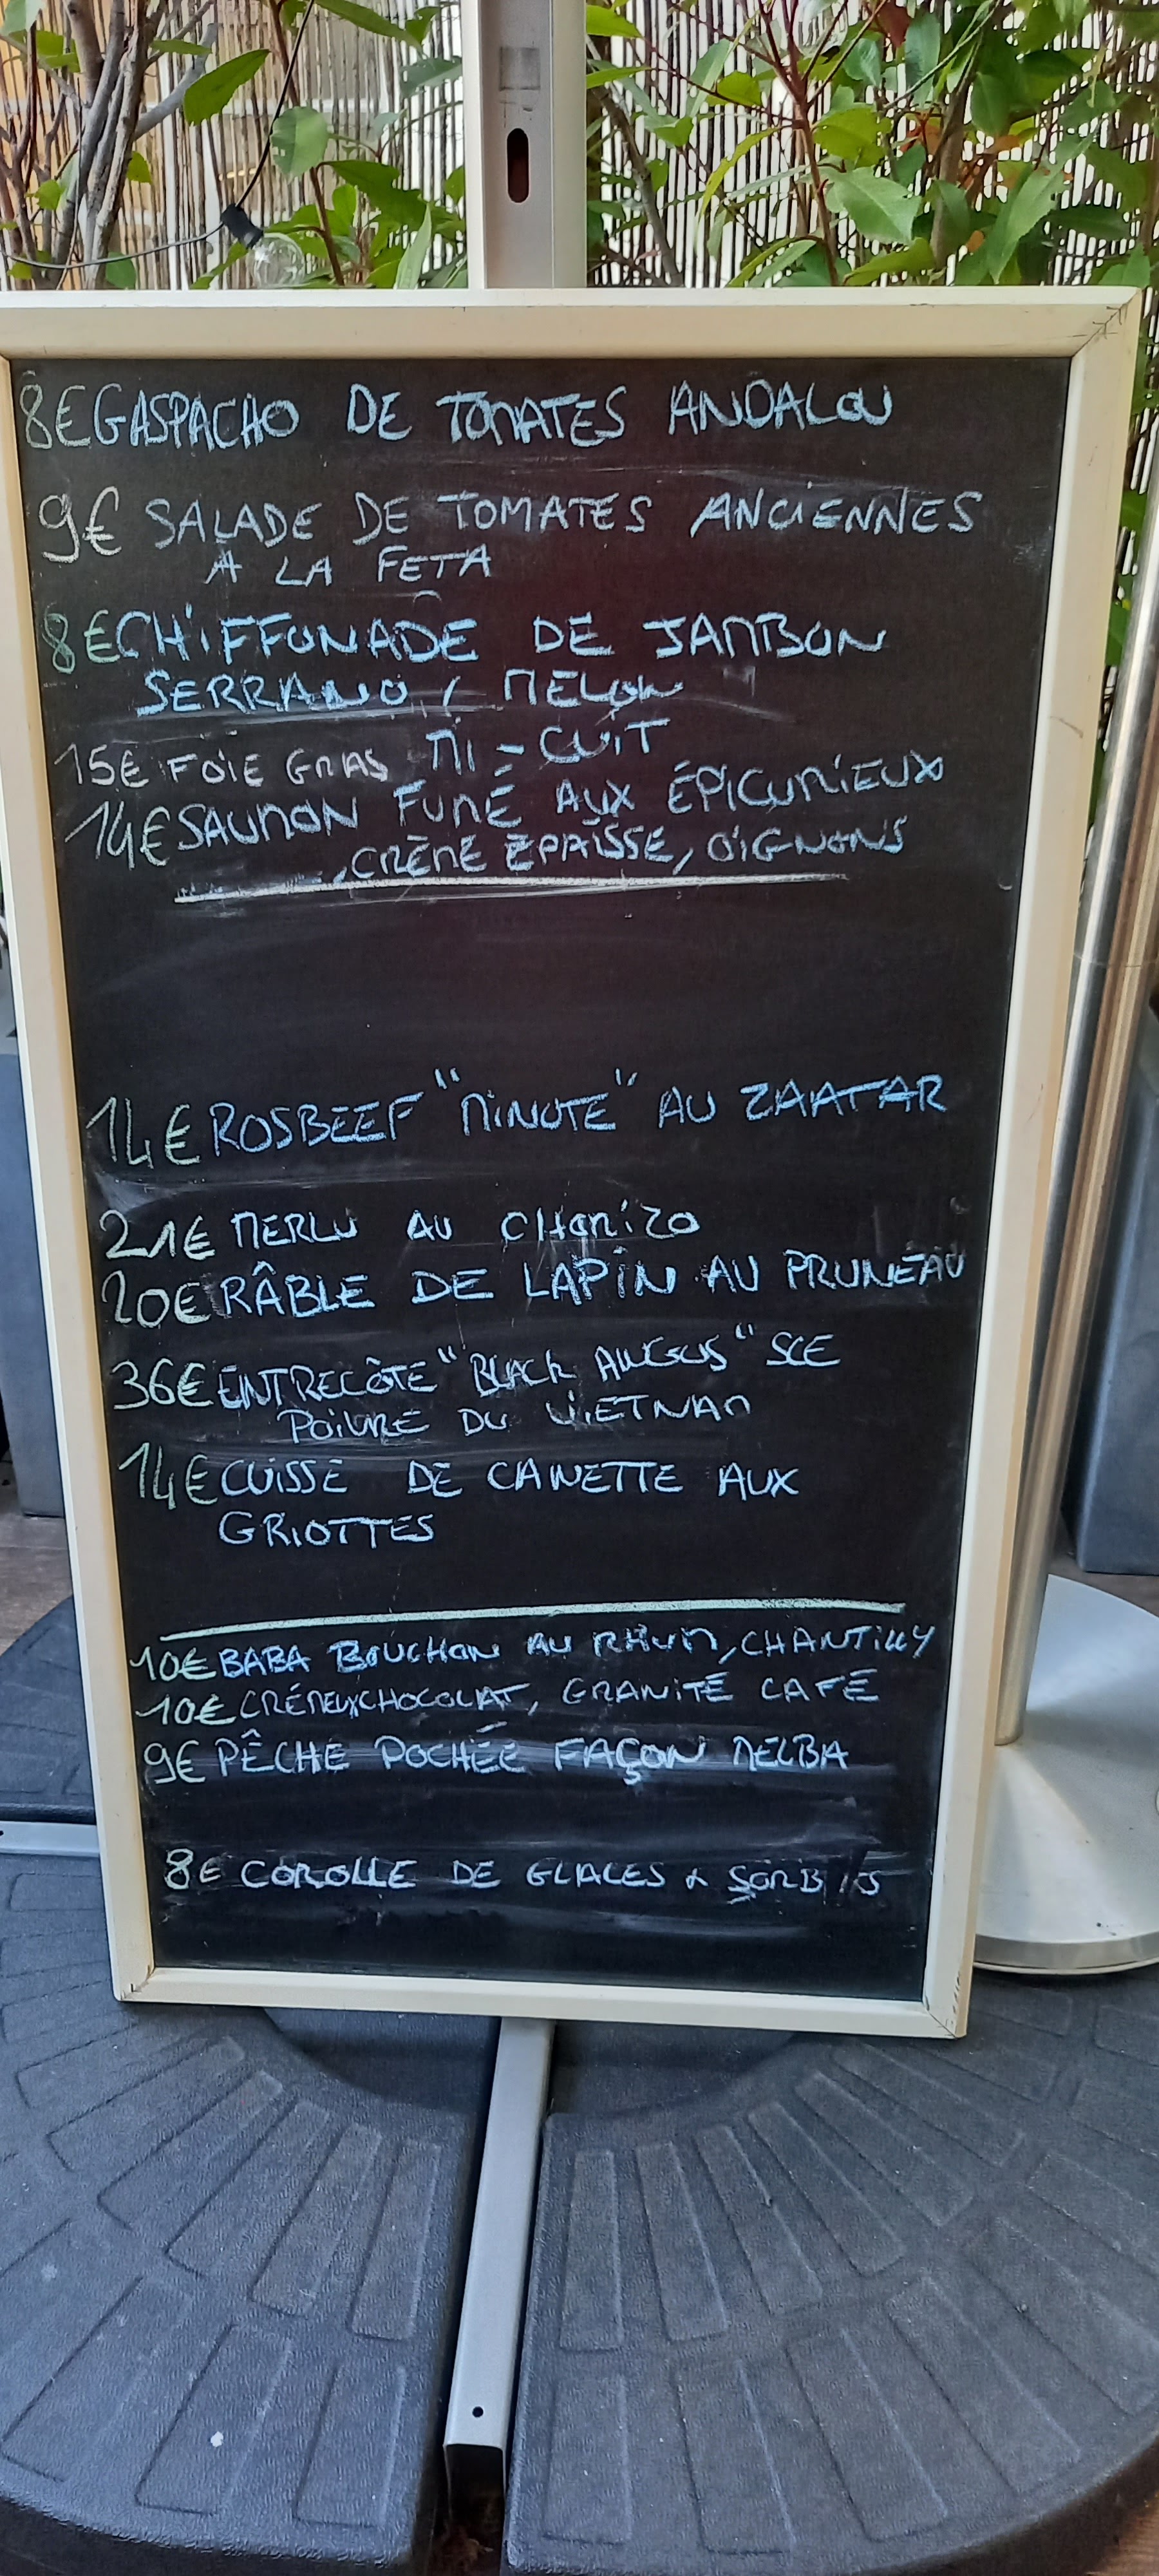 8€ GASPACHO DE TOMATES ANDALOU
9€ SALADE DE TOMATES ANCIENNES
A LA FETA
8€ CHIFFONADE DE JAMBON
SERRANO / MELON
15€ FOIE GRAS MI-CUIT
14€ SAUMON FUMÉ AUX ÉPICURIEUX
, CRÈME EPAISSE, OIGNONS
14€ ROSBEEF "MINUTE" AU ZAATAR
21€ MERLU AU CHORIZO
20€ RÂBLE DE LAPIN AU PRUNEAU
36€ ENTRECÔTE "BLACK ANGUS" SCE
POIVRE DU VIETNAM
14€ CUISSE DE CANETTE AUX
GRIOTTES
10€ BABA BOUCHON AU RHUM, CHANTILLY
10€ CRÉMEUX CHOCOLAT, GRANITÉ CAFÉ
9€ PÊCHE POCHÉE FAÇON MELBA
8€ COROLLE DE GLACES & SORBETS